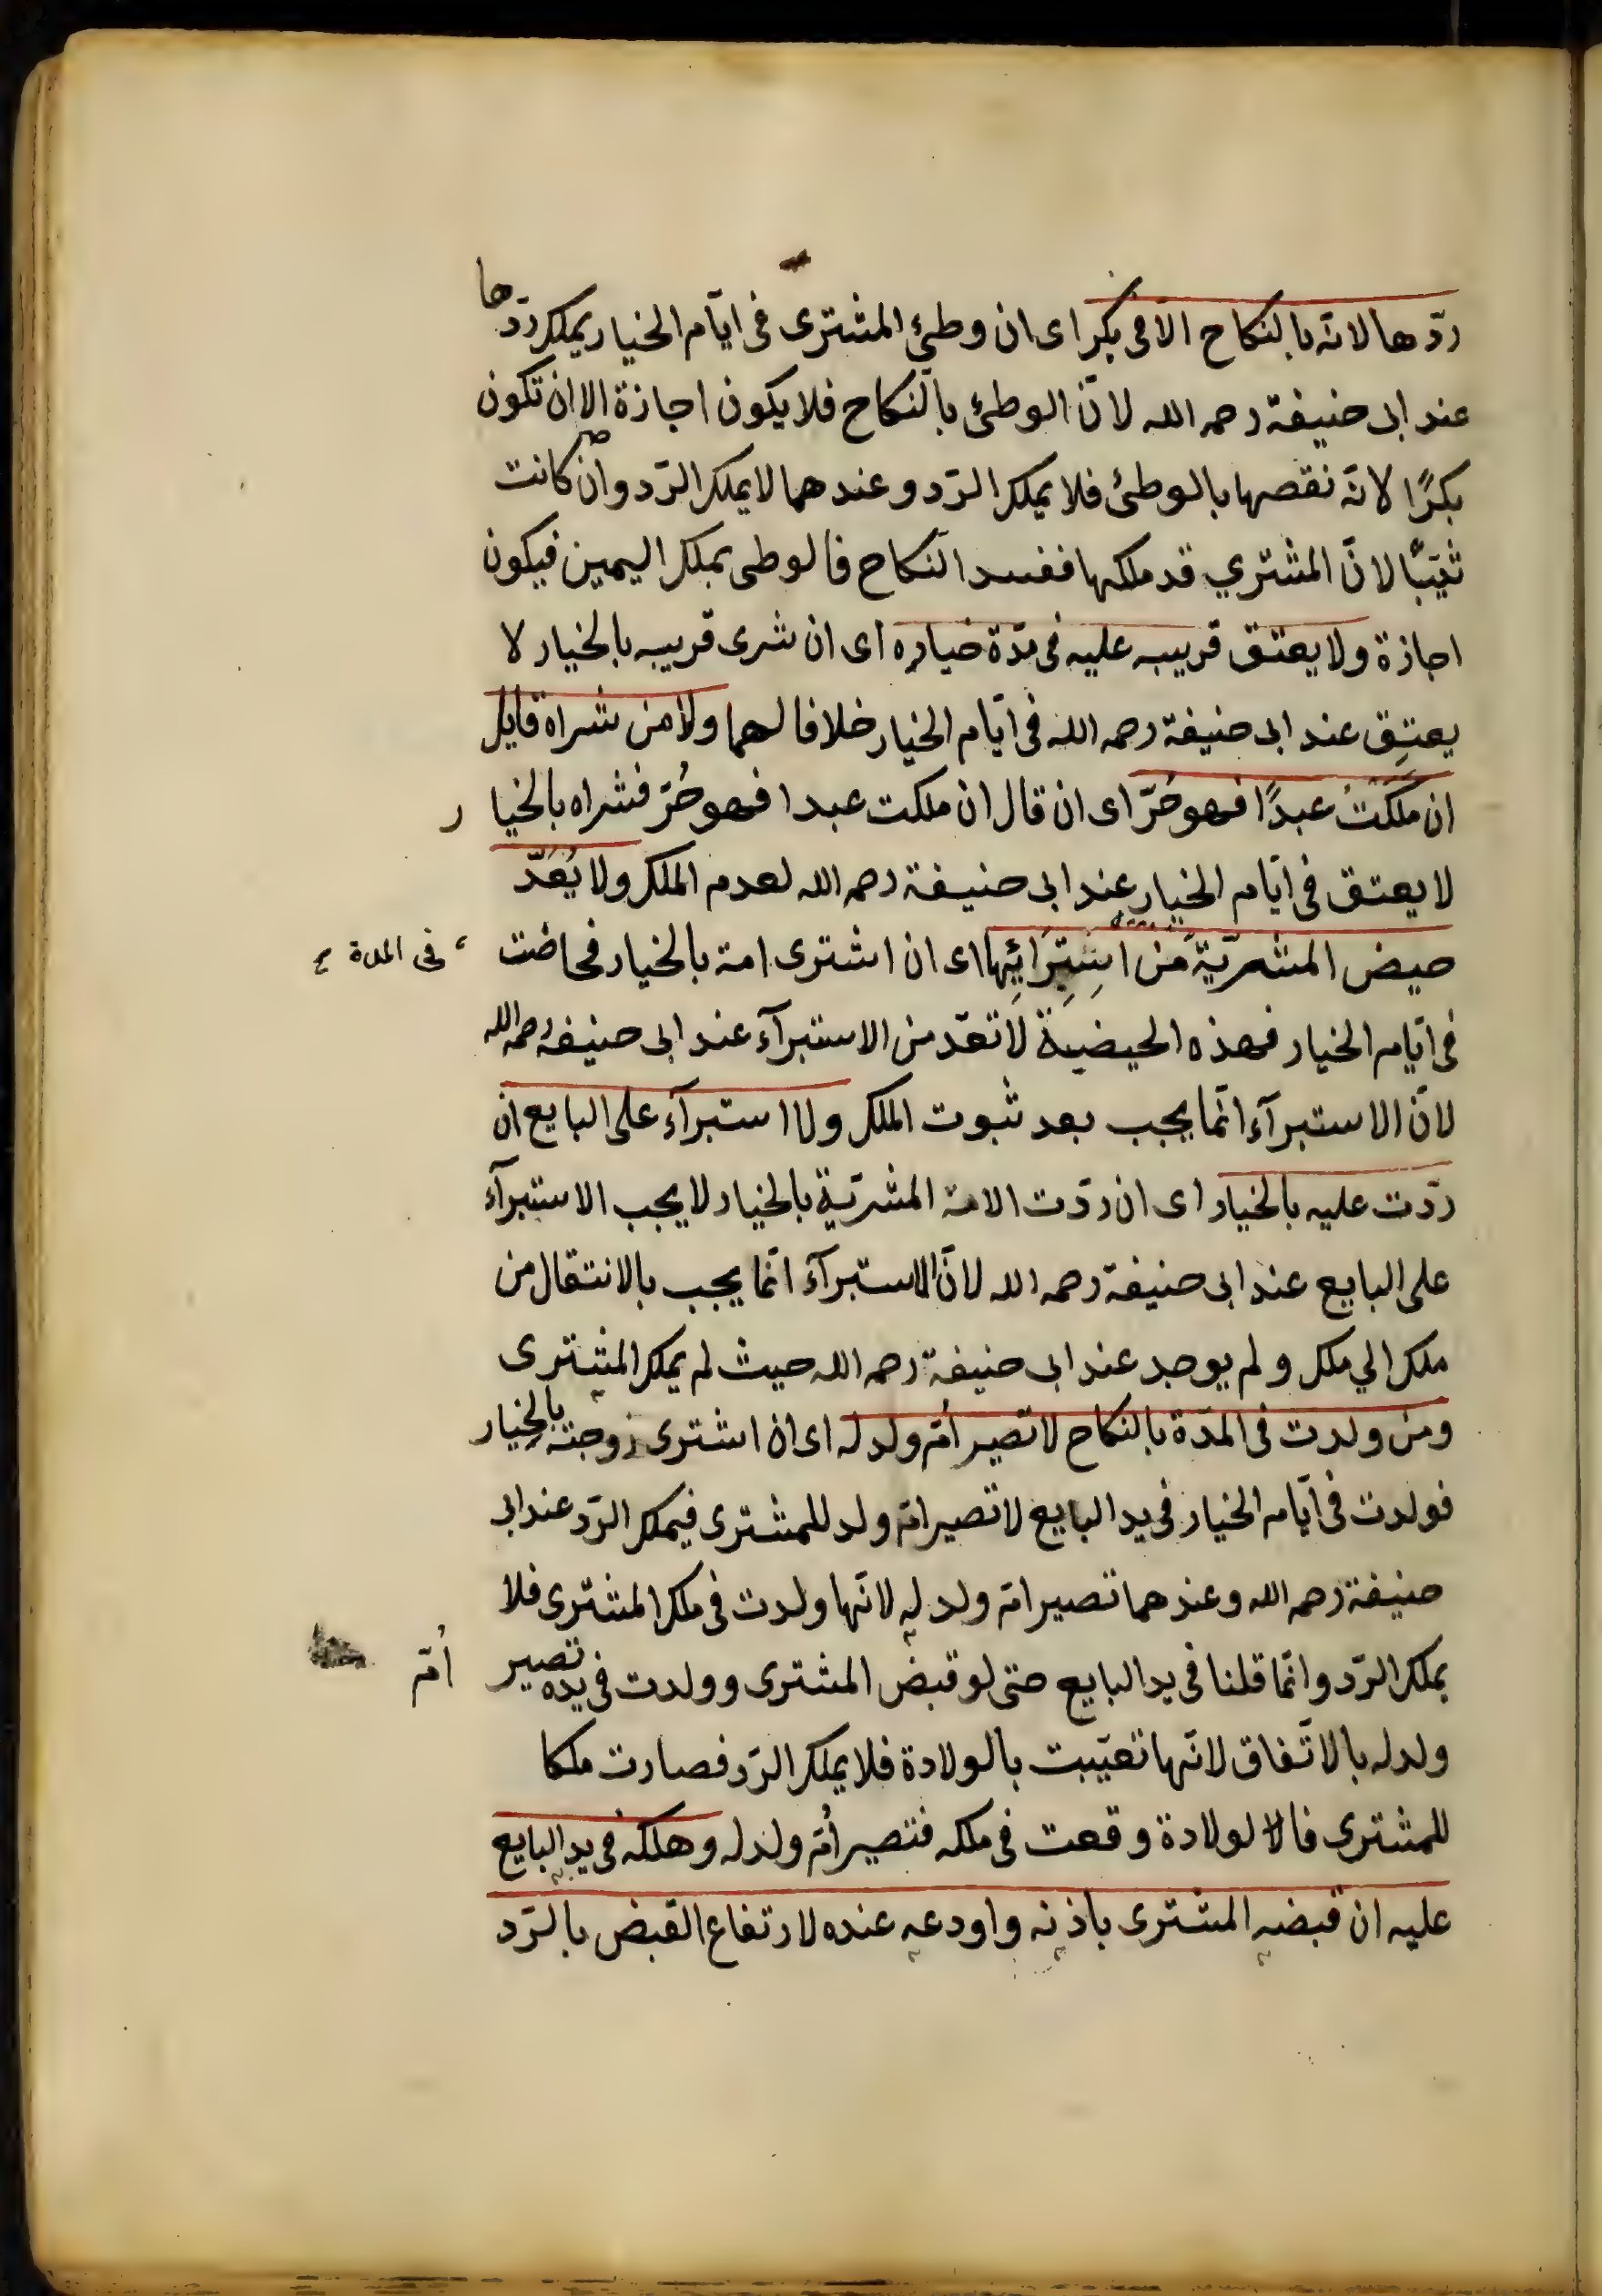 ردّها لانّه بالنكاح الّا فى بكر اى ان وطئ المشترى فى ايّام الخيار يملك ردّها
عند ابى حنيفة رحمه الله لانّ الوطئ بالنّكاح فلا يكون اجازة الا ان تكون
بكرًا لانّه نقصها بالوطئ فلا يملك الرّد وعندهما لا يملك الرّد وان كانت
ثيّبًا لانّ المشتري قد ملكها ففسد النّكاح فالوطى بملك اليمين فيكون
اجازة ولا يعتق قريبه عليه فى مدّة خياره اى ان شرى قريبه بالخيار لا
يعتق عند ابى حنيفة رحمه الله فى ايّام الخيار خلافا لهما ولا من شراه قايل
ان ملكتُ عبدًا فهو حُرّ اى ان قال ان ملكت عبدا فهو حُرّ فشراه بالخيار
لا يعتق فى ايّام الخيار عند ابى حنيفة رحمه الله لعدم الملك ولا يُعَدّ
حيض المشريّة من استبرائها اى ان اشترى امة بالخيار فحاضت فى المدة
فى ايّام الخيار فهذه الحيضة لا تعدّ من الاستبرآء عند ابى حنيفة رحمه الله
لانّ الاستبرآء انّما يجب بعد ثبوت الملك ولا استبرآء على البايع ان
ردّت عليه بالخيار اى ان ردّت الامة المشريّة بالخيار لا يجب الاستبرآء
على البايع عند ابى حنيفة رحمه الله لانّ الاستبرآء انّما يجب بالانتقال من
ملك الي ملك ولم يوجد عند ابى حنيفة رحمه الله حيث لم يملك المشترى
ومن ولدت فى المدّة بالنكاح لا تصير أمّ ولد له اى ان اشترى زوجته بالخيار
فولدت فى ايّام الخيار فى يد البايع لا تصير امّ ولد للمشترى فيملك الرّد عند ابى
حنيفة رحمه الله وعندهما تصير امّ ولد له لانّها ولدت فى ملك المشترى فلا
يملك الرّد وانّما قلنا فى يد البايع حتى لو قبض المشترى وولدت فى يده تصير أمّ
ولد له بالاتّفاق لانّها تعيّبت بالولادة فلا يملك الرّد فصارت ملكا
للمشترى فالا لولادة وقعت فى ملكه فتصير أمّ ولد له وهلكه فى يد البايع
عليه ان قبضه المشترى باذنه واودعه عنده لارتفاع القبض بالرّد